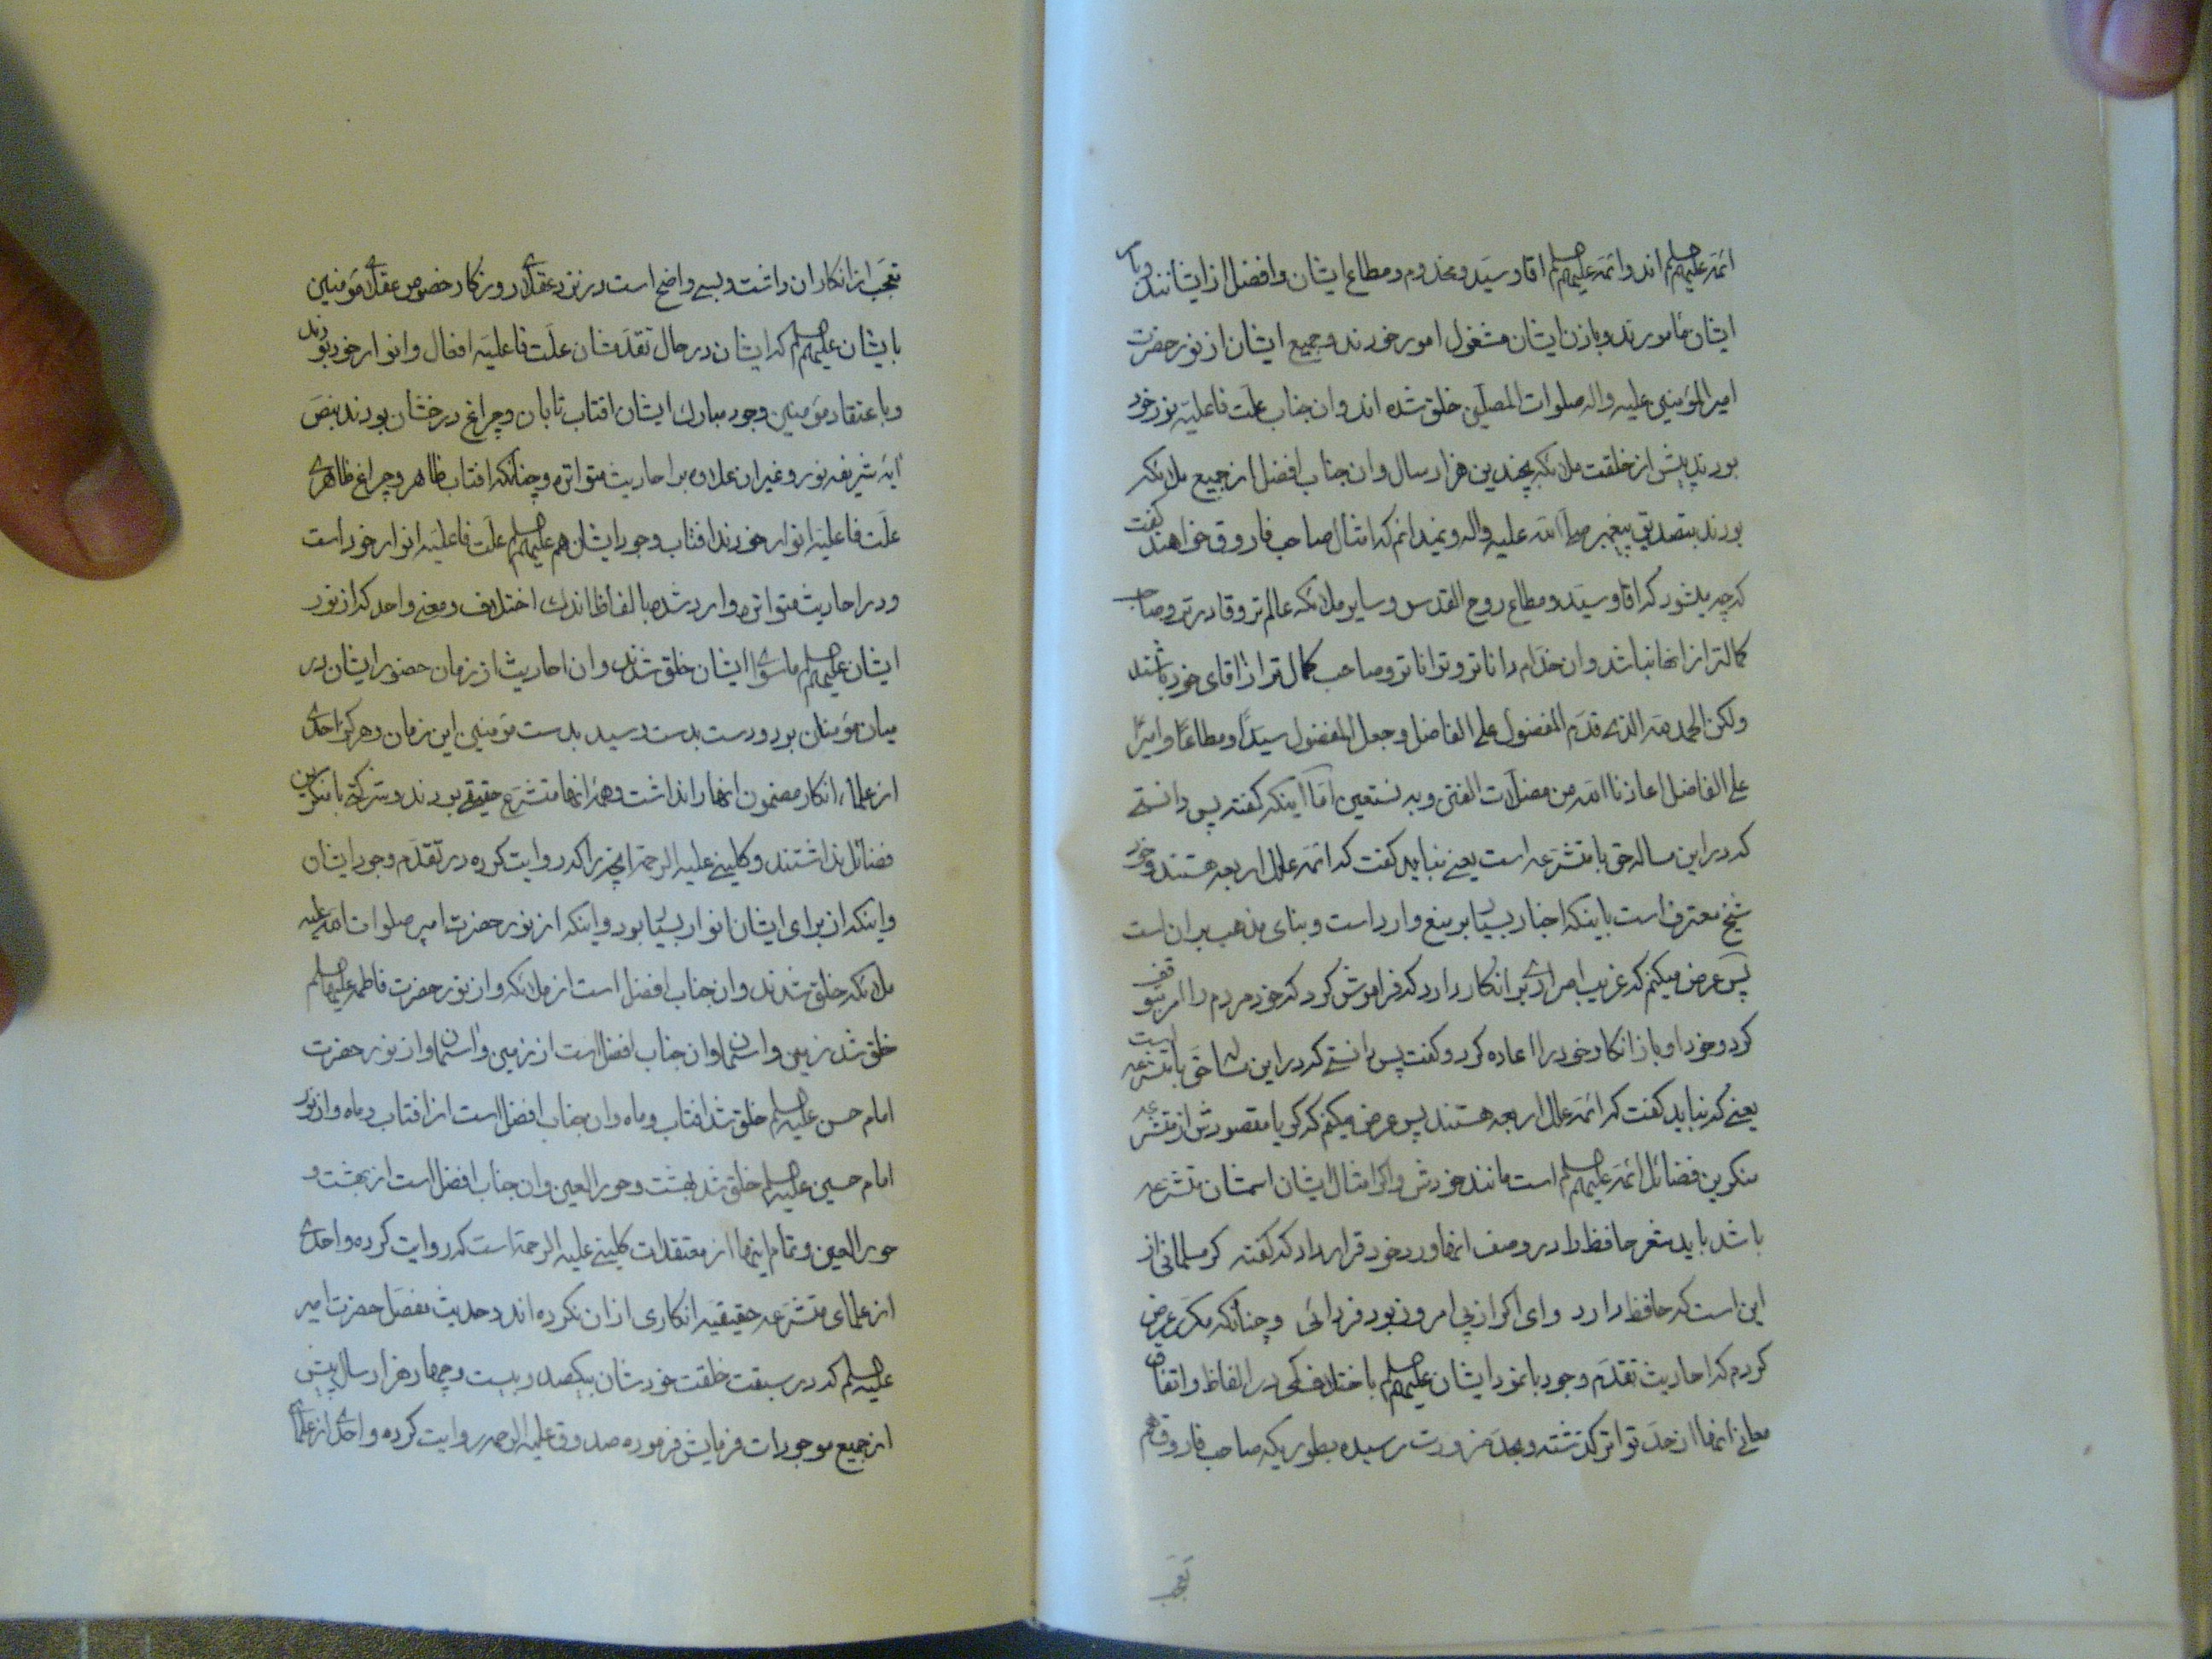 ائمه علیهم السلم اند و ائمه علیهم السلم اقا و سید و مخدوم و مطاع ایشان و افضل از ایشانند و بامر
ایشان مامورند و باذن ایشان مشغول امور خودند و جمیع ایشان از نور حضرت
امیرالمؤمنین علیه و اله صلوات المصلین خلق شده اند و ان جناب علت فاعلیه نور خود
بودند پیش از خلقت ملائکه بچندین هزار سال و ان جناب افضل از جمیع ملائکه
بودند بتصدیق پیغمبر صلی الله علیه و اله و نمیدانم که امثال صاحب فاروق خواهند گفت
که چه میشود که اقا و سید و مطاع روح القدس و سایر ملائکه عالم تر و قادر تر و صاحب
کمالتر از انها نباشد و ان خدام دانا تر و توانا تر و صاحب کمال تر از اقای خود باشند
ولکن الحمد لله الذی قدم المفضول علی الفاضل و جعل المفضول سیدًا و مطاعًا و امیرًا
علی الفاضل اعاذنا الله من مضلات الفتن و به نستعین اما اینکه گفته پس دانستی
که در این مساله حق با متشرعه است یعنی نباید گفت که ائمه علل اربعه هستند و خود
شیخ معترف است باینکه اخبار بسیار بر منع وارد است و بنای مذهب بر ان است
پس عرض میکنم که غریب اصراری بر انکار دارد که فراموش کرد که خود مردم را امر بتوقف
کرد و خود او باز انکار خود را اعاده کرد و گفت پس دانستی که در این مساله حق با متشرعه است
یعنی که نباید گفت که ائمه علل اربعه هستند پس عرض میکنم که گویا مقصودش از متشرعه
منکرین فضائل ائمه علیهم السلم است مانند خودش و اگر امثال ایشان اسمشان متشرعه
باشد باید شعر حافظ را در وصف انها ورد خود قرار داد که گفته گر مسلمانی از
این است که حافظ دارد وای اگر از پی امروز بود فردائی و چنانکه مکرر عرض
کردم که احادیث تقدم وجود با نمود ایشان علیهم السلم با اختلاف کمی در الفاظ و اتفاق
معانی انها از حد تواتر گذشته و بحد ضرورت رسیده بطوریکه صاحب فاروق هم
تعجب
تعجب از انکار ان داشت و بسی واضح است در نزد عقلای روزکار خصوص عقلای مؤمنین
بایشان علیهم السلم که ایشان در حال تقدمشان علت فاعلیه افعال و انوار خود بودند
و باعتقاد مؤمنین وجود مبارک ایشان افتاب تابان و چراغ درخشان بودند بنص
ایه شریفه نور و غیر ان علاوه بر احادیث متواتره و چنانکه افتاب ظاهر و چراغ ظاهری
علت فاعلیه انوار خودند افتاب وجود ایشان هم علیهم السلم علت فاعلیه انوار خود است
و در احادیث متواتره وارد شده با الفاظ اندک اختلاف و معنی واحد که از نور
ایشان علیهم السلم ماسوای ایشان خلق شدند و ان احادیث از زمان حضور ایشان در
میان مؤمنان بود و دست بدست رسید بدست مؤمنین این زمان و هرگز احدی
از علماء انکار مضمون انها را نداشت و همه انها متشرع حقیقی بودند و شرکتی با منکرین
فضائل نداشتند و کلینی علیه الرحمه انچه را که روایت کرده در تقدم وجود ایشان
و اینکه از برای ایشان انوار بسیار بود و اینکه از نور حضرت امیر صلوات الله علیه
ملائکه خلق شدند و ان جناب افضل است از ملائکه و از نور حضرت فاطمه علیها السلم
خلق شد زمین و اسمان و ان جناب افضل است از زمین و اسمان و از نور حضرت
امام حسن علیه السلم خلق شد افتاب و ماه و ان جناب افضل است از افتاب و ماه و از نور
امام حسین علیه السلم خلق شد بهشت و حور العین و ان جناب افضل است از بهشت و
حور العین و تمام اینها از معتقدات کلینی علیه الرحمه است که روایت کرده و احدی
از علمای متشرعه حقیقیه انکاری از ان نکرده اند و حدیث مفصل حضرت امیر
علیه السلم که در سبقت خلقت خودشان بیکصد و بیست و چهار هزار سال پیش
از جمیع موجودات فرمایش فرموده صدوق علیه الرحمه روایت کرده و احدی از علمای